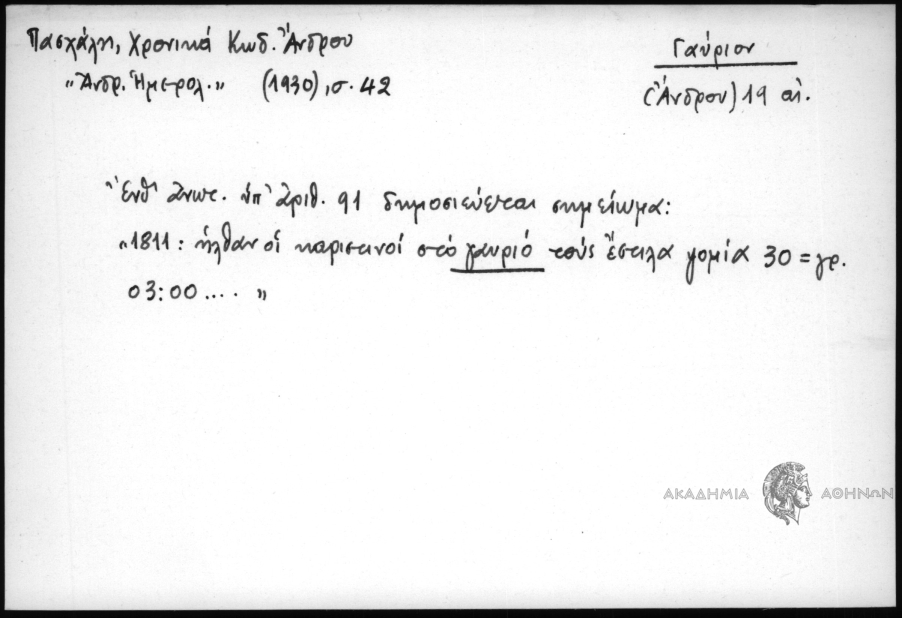 Πασχάλη, Χρονικά Κωδ. Ἄνδρου
"Ἀνδρ. Ἡμερολ." (1930), σ. 42
Γαύριον
(Ἄνδρου) 19 αἰ.
Ἔνθ' ἄνωτ. ὑπ' ἀριθ. 91 δημοσιεύεται σημείωμα:
"1811: ἦλθαν οἱ παριτινοί στό γαυριό τούς ἔστιλα γομία 30 = γρ.
03:00 .... "
ΑΚΑΔΗΜΙΑ ΑΘΗΝΩΝ